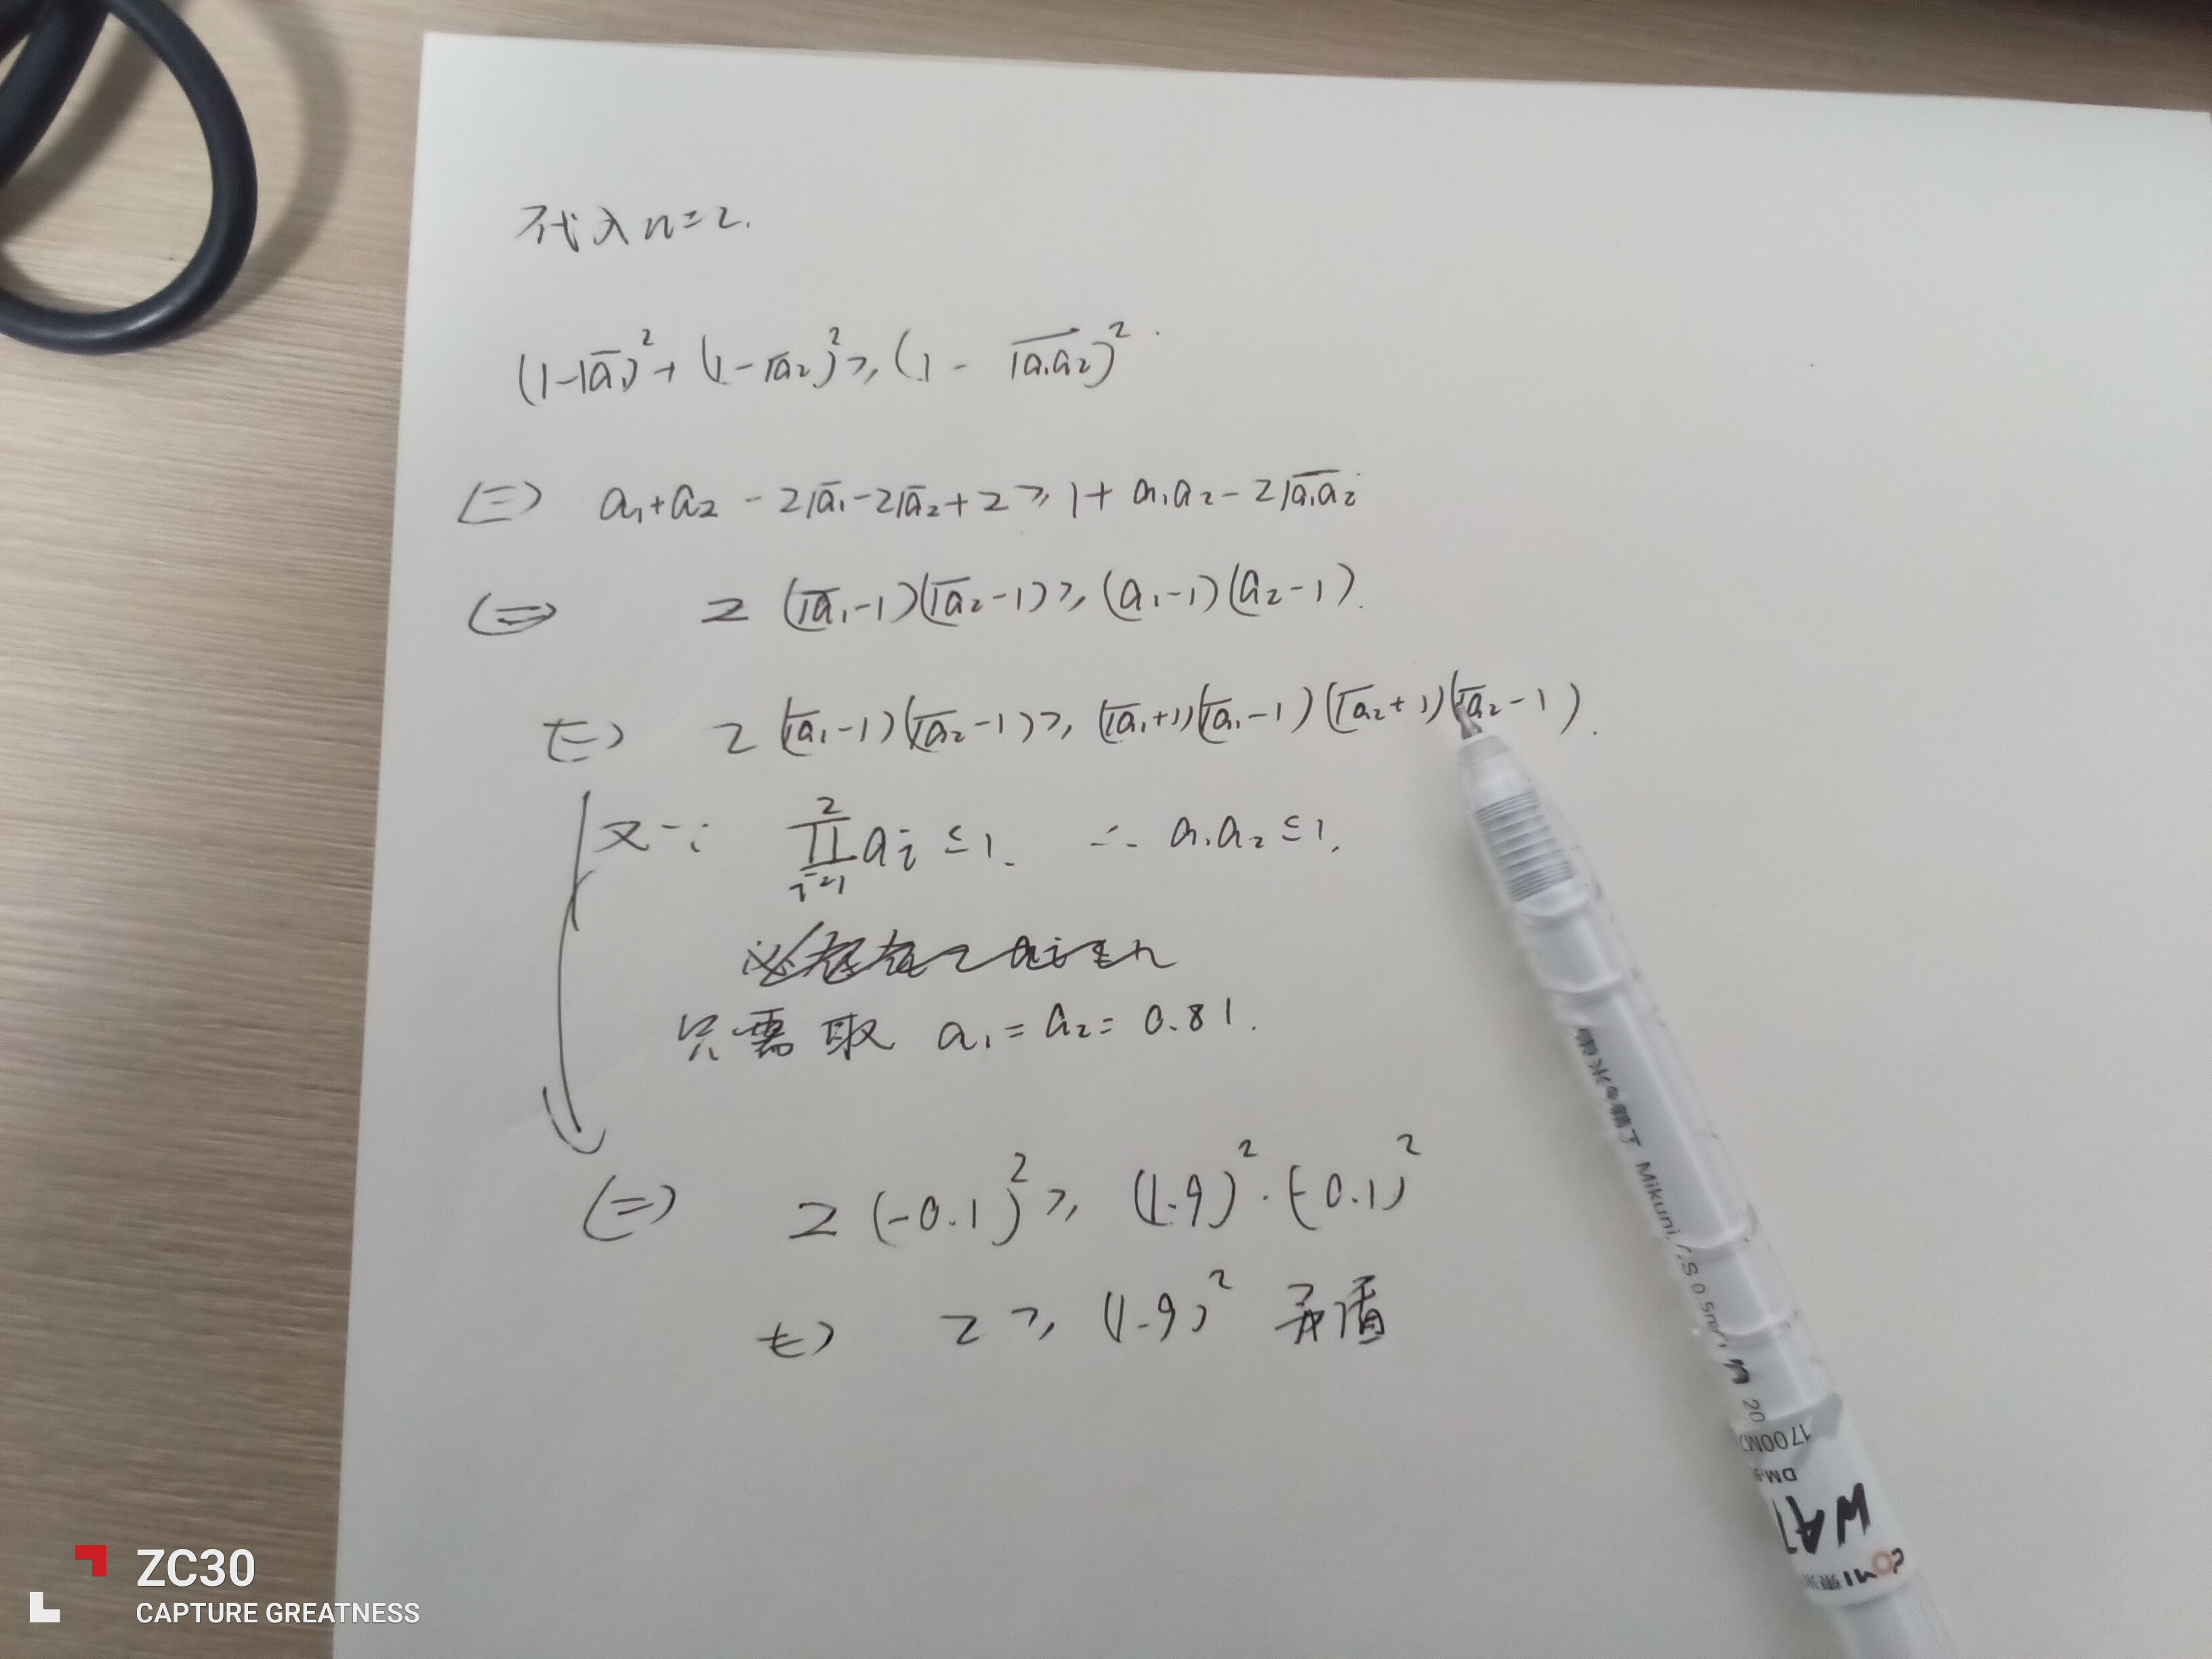 代入n=2.
(1-√a₁)²+(1-√a₂)²≥(1-√a₁a₂)².
⟺ a₁+a₂-2√a₁-2√a₂+2≥1+a₁a₂-2√a₁a₂
⟺ 2(√a₁-1)(√a₂-1)≥(a₁-1)(a₂-1).
⟺ 2(√a₁-1)(√a₂-1)≥(√a₁+1)(√a₁-1)(√a₂+1)(√a₂-1).
又∵ ∏_{i=1}^{2} aᵢ≤1. ∴ a₁a₂≤1.
只需取 a₁=a₂=0.81.
⟺ 2(-0.1)²≥(1.9)²·(-0.1)²
⟺ 2≥(1.9)² 矛盾
Mikuni
0.5mm
20
1700M
DM-
WAT
ZC30
CAPTURE GREATNESS